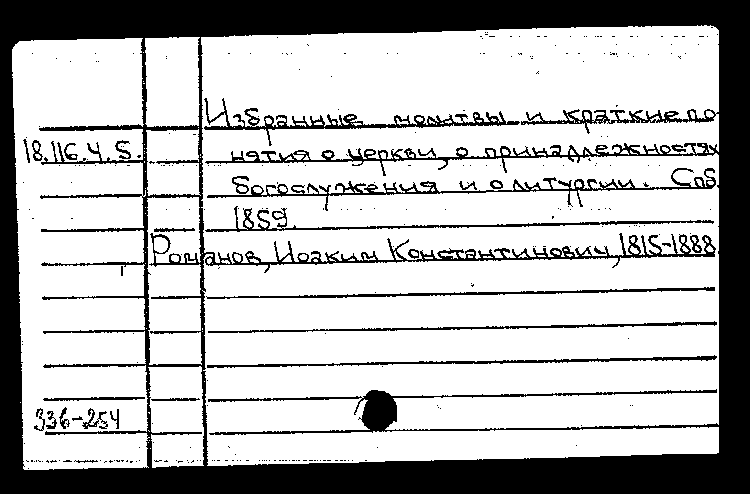 Избранные молитвы и краткие по
18.116.4.5. нятия о церкви, о принадлежностях
богослужения и о литургии. Спб.
1859.
Романов, Иоаким Константинович, 1815-1888
336-254